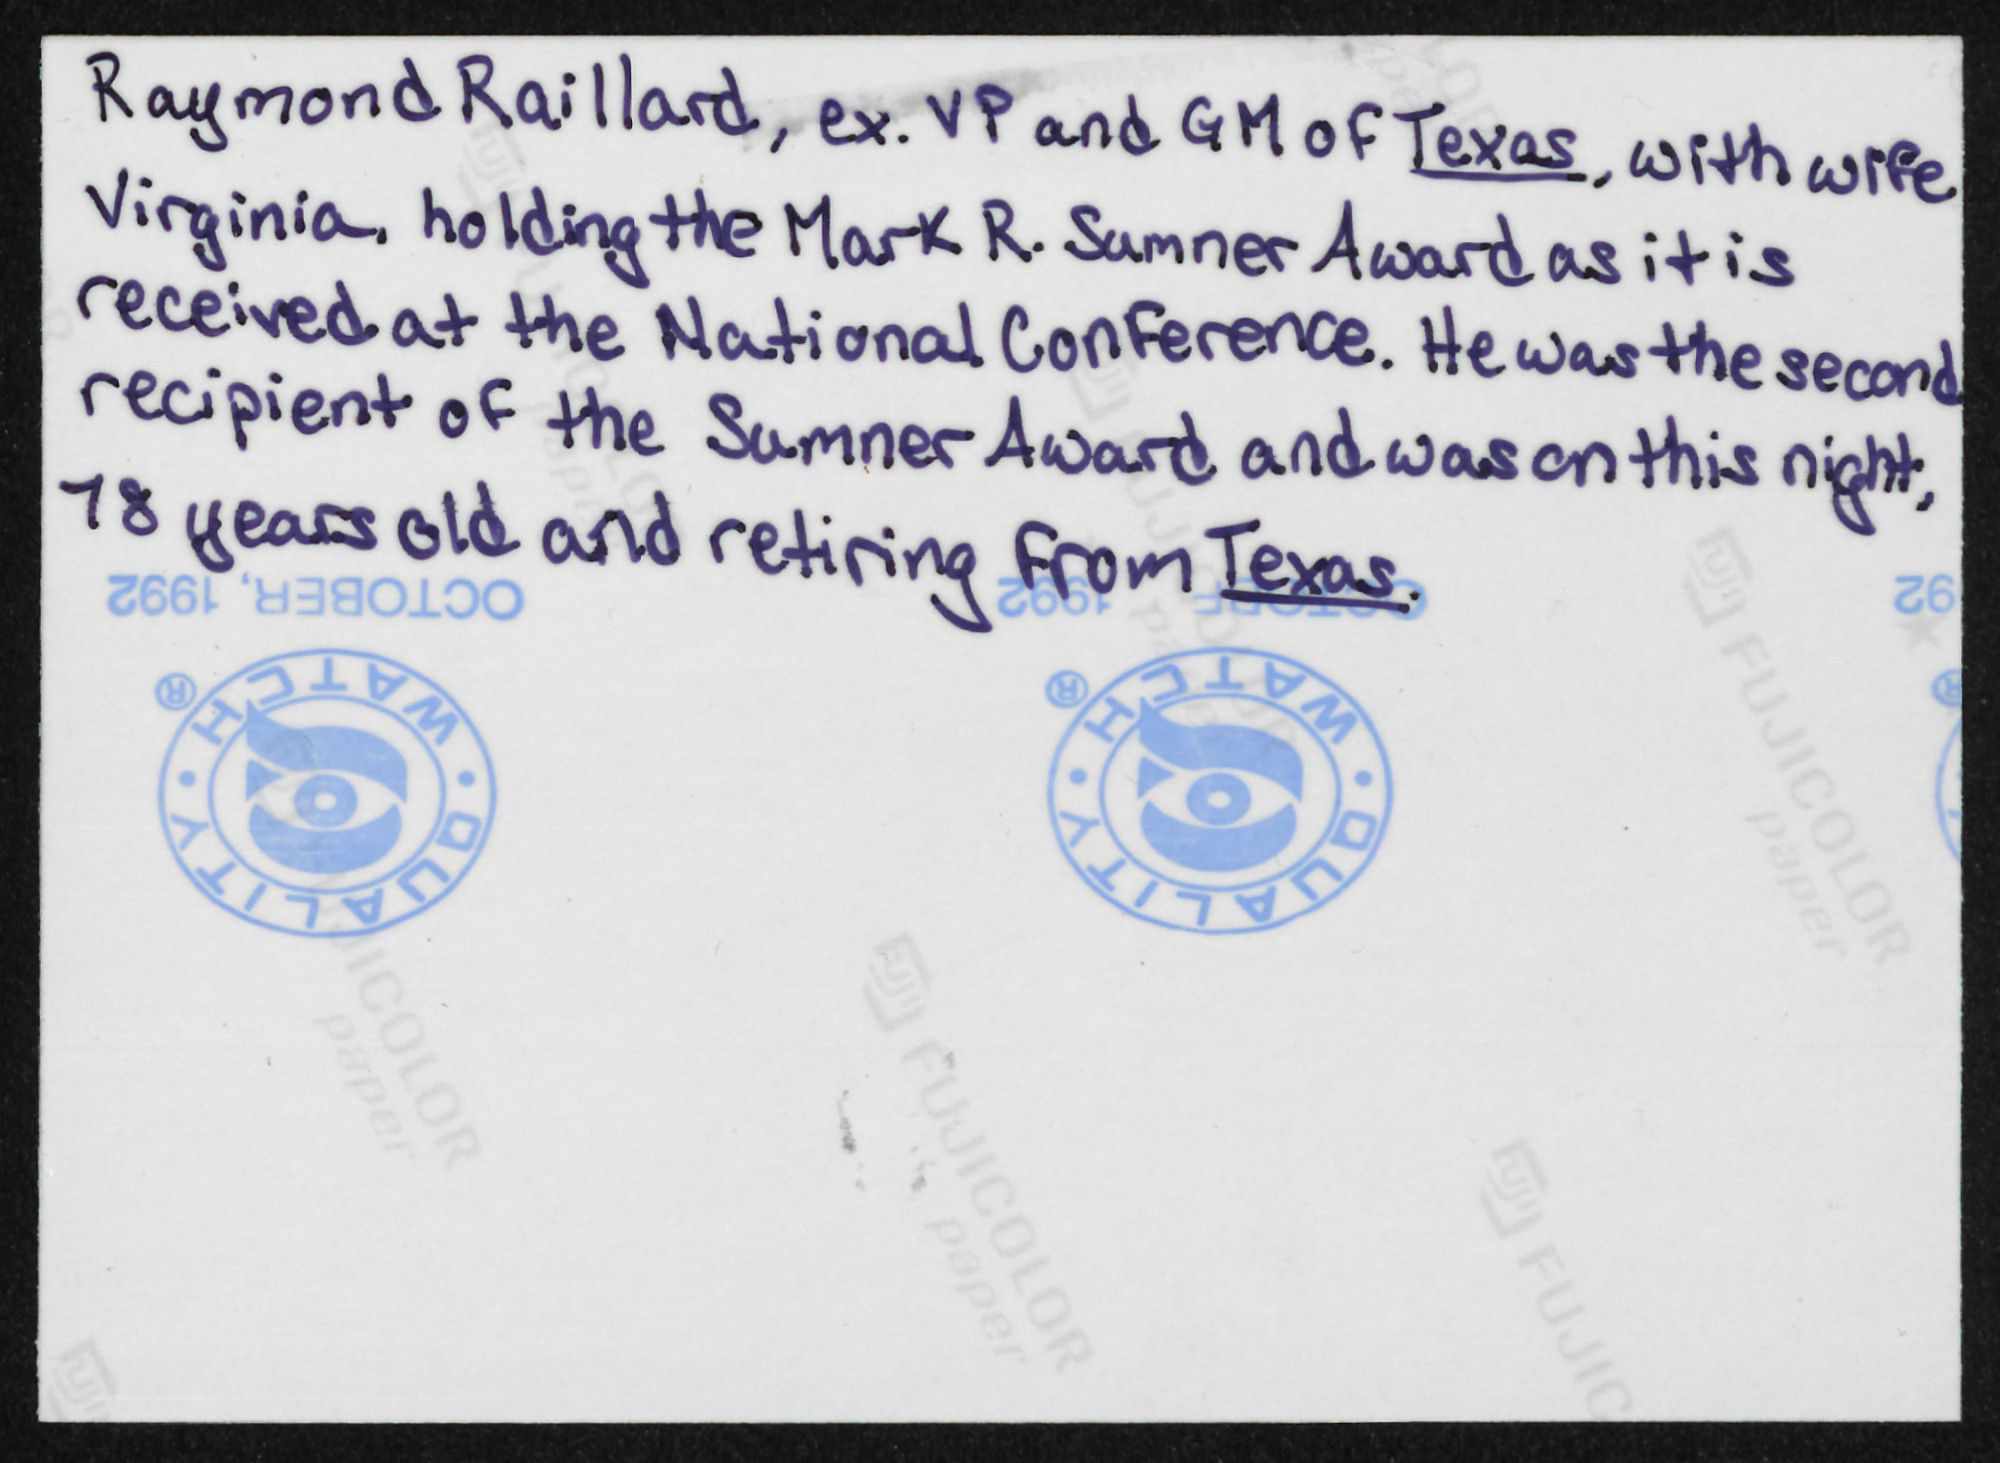 Raymond Raillard, ex. VP and GM of Texas, with wife
Virginia, holding the Mark R. Sumner Award as it is
received at the National Conference. He was the second
recipient of the Sumner Award and was on this night,
78 years old and retiring from Texas.
OCTOBER, 1992
OCTOBER, 1992
92
QUALITY • WATCH •
®
QUALITY • WATCH •
®
®
FUJICOLOR
paper
FUJICOLOR
paper
FUJICOLOR
paper
FUJIC